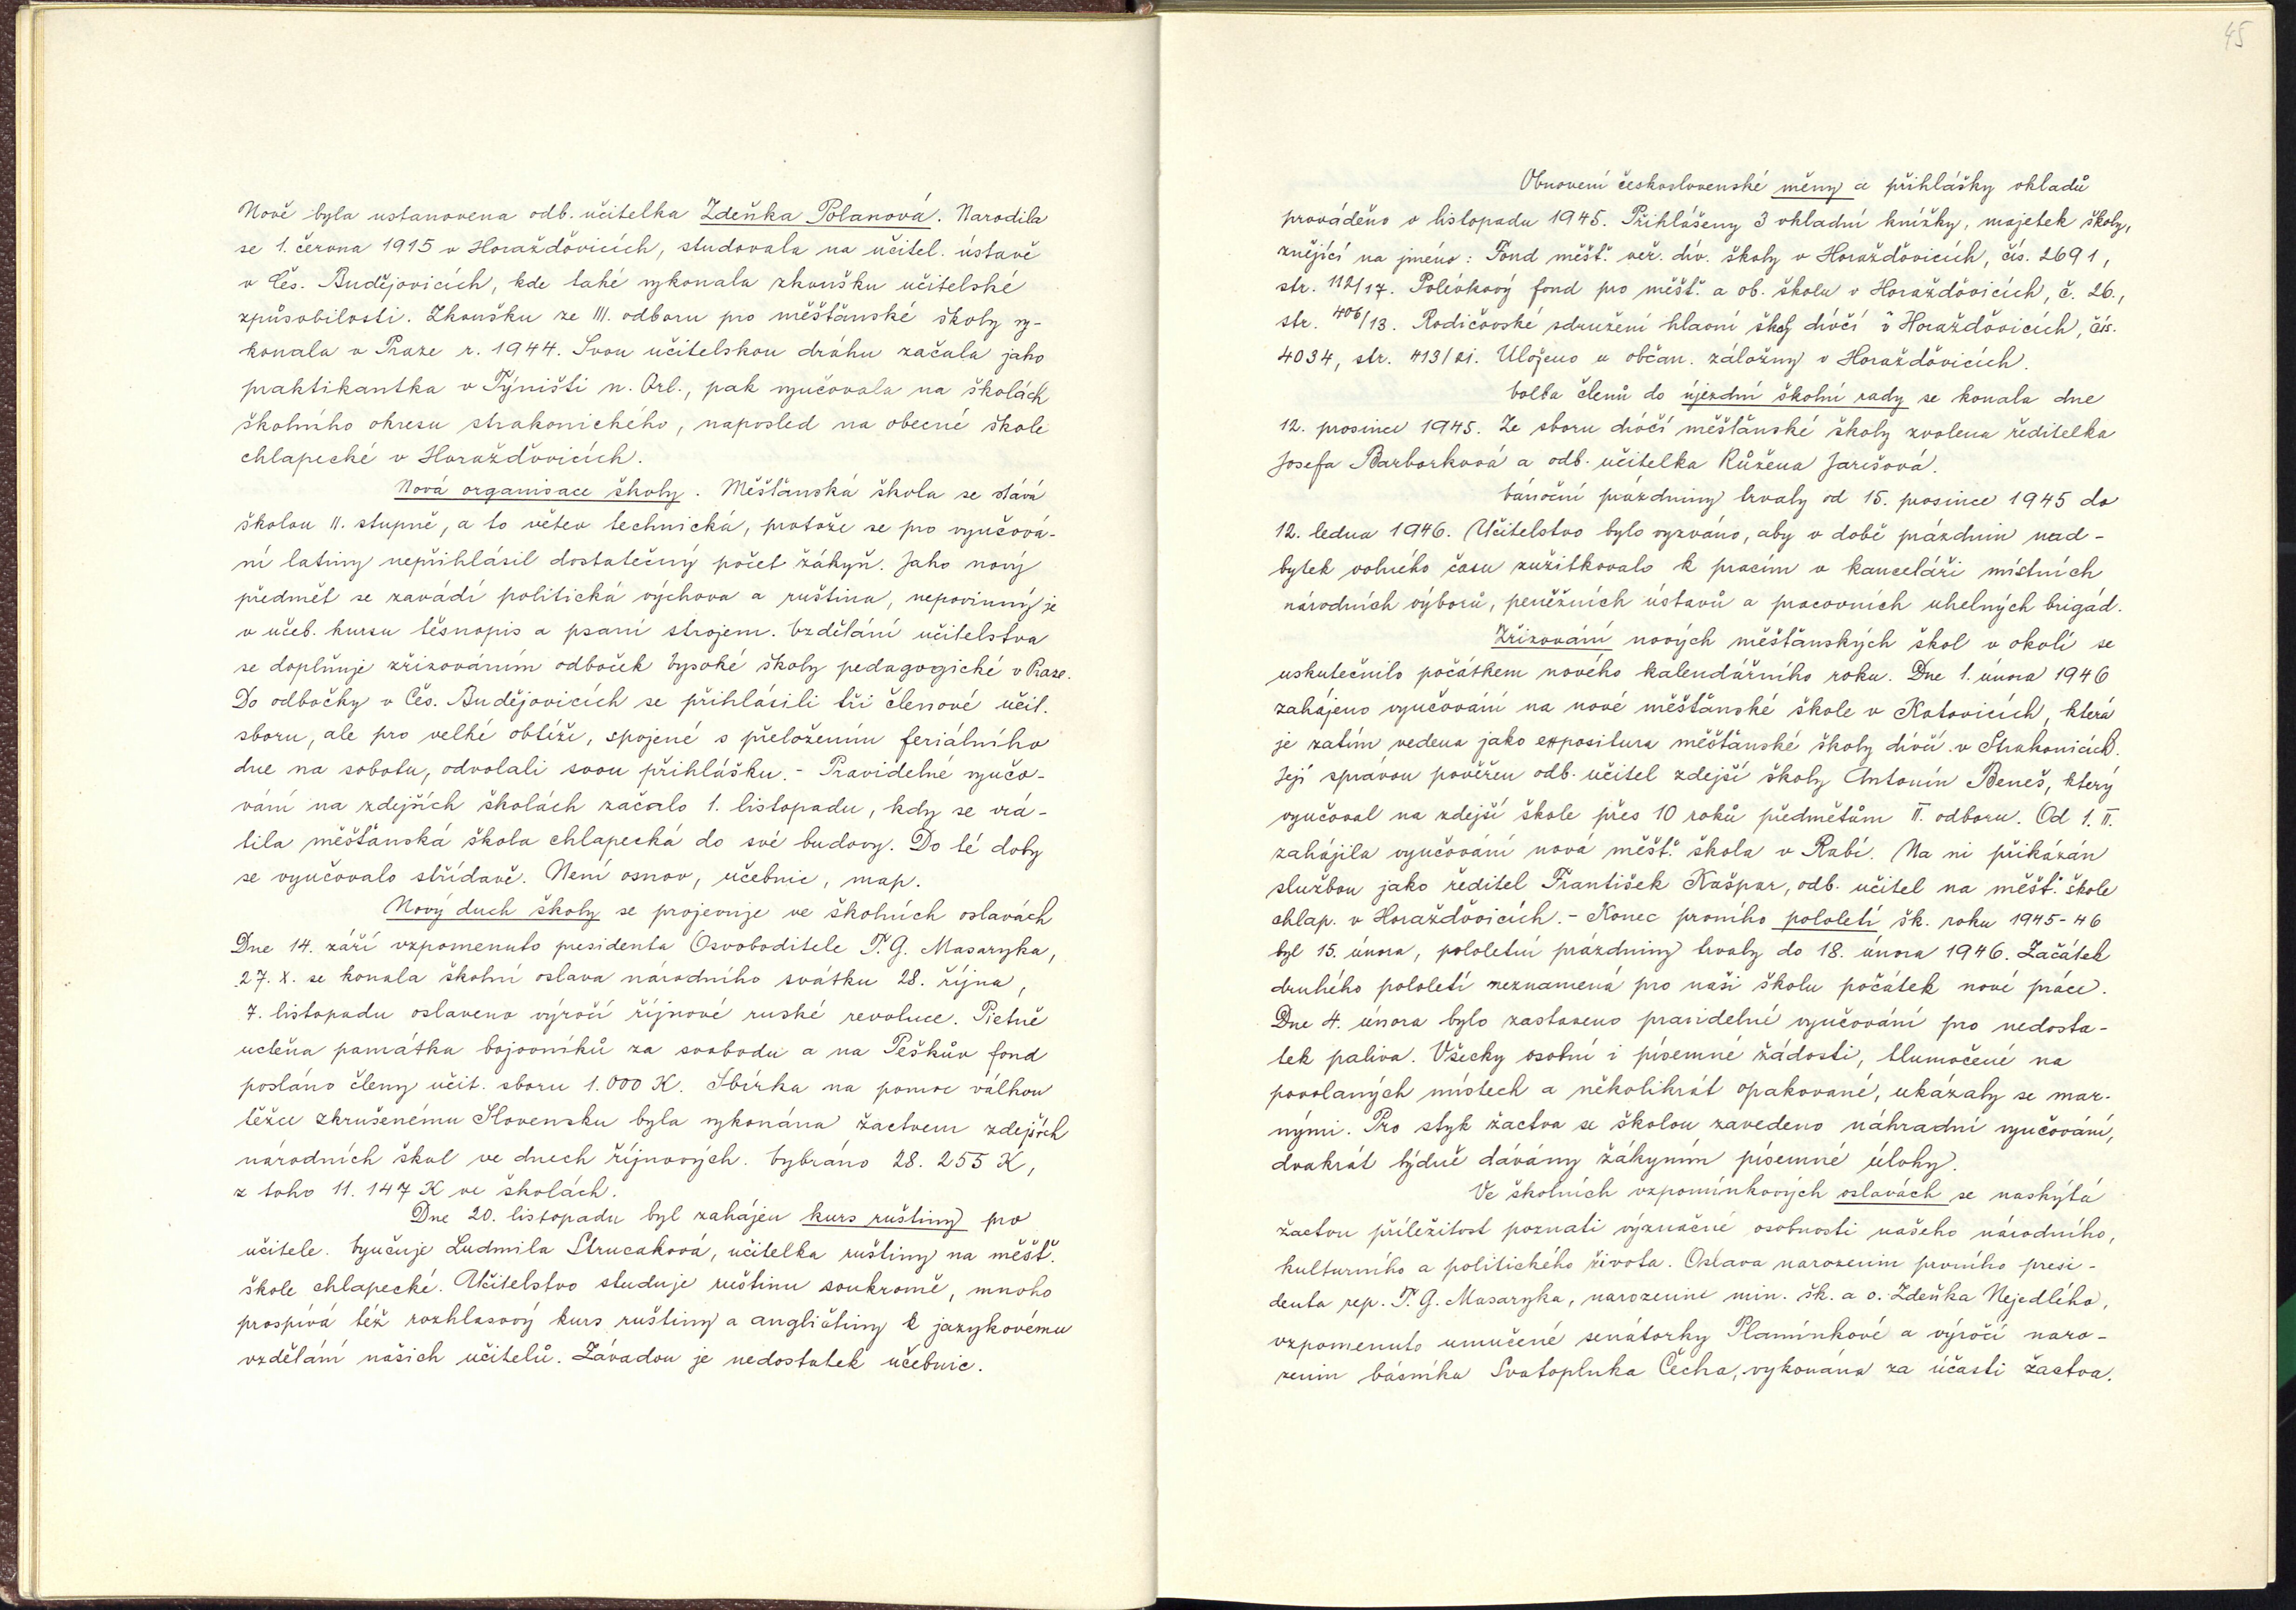 Nově byla ustanovena odb. učitelka Zdeňka Polanová. Narodila
se 1. června 1915 v Horažďovicích, studovala na učitel. ústavě
v Čes. Budějovicích, kde také vykonala zkoušku učitelské
způsobilosti. Zkoušku ze III. odboru pro měšťanské školy vy-
konala v Praze r. 1944. Svou učitelskou dráhu začala jako
praktikantka v Týništi n. Orl., pak vyučovala na školách
školního okresu strakonického, naposled na obecné škole
chlapecké v Horažďovicích.
Nová organisace školy. Měšťanská škola se stává
školou II. stupně, a to větev technická, protože se pro vyučová-
ní latiny nepřihlásil dostatečný počet žákyň. Jako nový
předmět se zavádí politická výchova a ruština, nepovinný je
v učeb. kursu těsnopis a psaní strojem. Vzdělání učitelstva
se doplňuje zřizováním odboček Vysoké školy pedagogické v Praze.
Do odbočky v Čes. Budějovicích se přihlásili tři členové učit.
sboru, ale pro velké obtíže, spojené s přeložením feriálního
dne na sobotu, odvolali svou přihlášku. - Pravidelné vyučo-
vání na zdejších školách začalo 1. listopadu, kdy se vrá-
tila měšťanská škola chlapecká do své budovy. Do té doby
se vyučovalo střídavě. Není osnov, učebnic, map.
Nový duch školy se projevuje ve školních oslavách
Dne 14. září vzpomenuto presidenta Osvoboditele T. G. Masaryka,
27. X. se konala školní oslava národního svátku 28. října,
7. listopadu oslaveno výročí říjnové ruské revoluce. Pietně
uctěna památka bojovníků za svobodu a na Peškův fond
posláno členy učit. sboru 1.000 K. Sbírka na pomoc válkou
těžce zkrušenému Slovensku byla vykonána žactvem zdejších
národních škol ve dnech říjnových. Vybráno 28.255 K,
z toho 11.147 K ve školách.
Dne 20. listopadu byl zahájen kurs ruštiny pro
učitele. Vyučuje Ludmila Strucaková, učitelka ruštiny na měšť.
škole chlapecké. Učitelstvo studuje ruštinu soukromě, mnoho
prospívá též rozhlasový kurs ruštiny a angličtiny k jazykovému
vzdělání našich učitelů. Závadou je nedostatek učebnic.
45
Obnovení československé měny a přihlášky vkladů
prováděno v listopadu 1945. Přihlášeny 3 vkladní knížky, majetek školy,
znějící na jméno: Fond měšť. veř. dív. školy v Horažďovicích, čís. 2691,
str. 112/17. Polévkový fond pro měšť. a ob. školu v Horažďovicích, č. 26.,
str. 406/13. Rodičovské sdružení hlavní školy dívčí v Horažďovicích, čís.
4034, str. 413/21. Uloženo u občan. záložny v Horažďovicích.
Volba členů do újezdní školní rady se konala dne
12. prosince 1945. Ze sboru dívčí měšťanské školy zvolena ředitelka
Josefa Barborková a odb. učitelka Růžena Jarešová.
Vánoční prázdniny trvaly od 15. prosince 1945 do
12. ledna 1946. Učitelstvo bylo vyzváno, aby v době prázdnin nad-
bytek volného času zužitkovalo k pracím v kanceláři místních
národních výborů, peněžních ústavů a pracovních uhelných brigád.
Zřizování nových měšťanských škol v okolí se
uskutečnilo počátkem nového kalendářního roku. Dne 1. února 1946
zahájeno vyučování na nové měšťanské škole v Katovicích, která
je zatím vedena jako expositura měšťanské školy dívčí v Strakonicích.
Její správou pověřen odb. učitel zdejší školy Antonín Beneš, který
vyučoval na zdejší škole přes 10 roků předmětům II. odboru. Od 1. II.
zahájila vyučování nová měšť. škola v Rabí. Na ni přikázán
službou jako ředitel František Kašpar, odb. učitel na měšť. škole
chlap. v Horažďovicích. - Konec prvního pololetí šk. roku 1945-46
byl 15. února, pololetní prázdniny trvaly do 18. února 1946. Začátek
druhého pololetí neznamená pro naši školu počátek nové práce.
Dne 4. února bylo zastaveno pravidelné vyučování pro nedosta-
tek paliva. Všecky osobní i písemné žádosti, tlumočené na
povolaných místech a několikrát opakované, ukázaly se mar-
nými. Pro styk žactva se školou zavedeno náhradní vyučování,
dvakrát týdně dávány žákyním písemné úlohy.
Ve školních vzpomínkových oslavách se naskýtá
žactvu příležitost poznati význačné osobnosti našeho národního,
kulturního a politického života. Oslava narozenin prvního presi-
denta rep. T. G. Masaryka, narozenin min. šk. a o. Zdeňka Nejedlého,
vzpomenuto umučené senátorky Plamínkové a výročí naro-
zenin básníka Svatopluka Čecha, vykonána za účasti žactva.